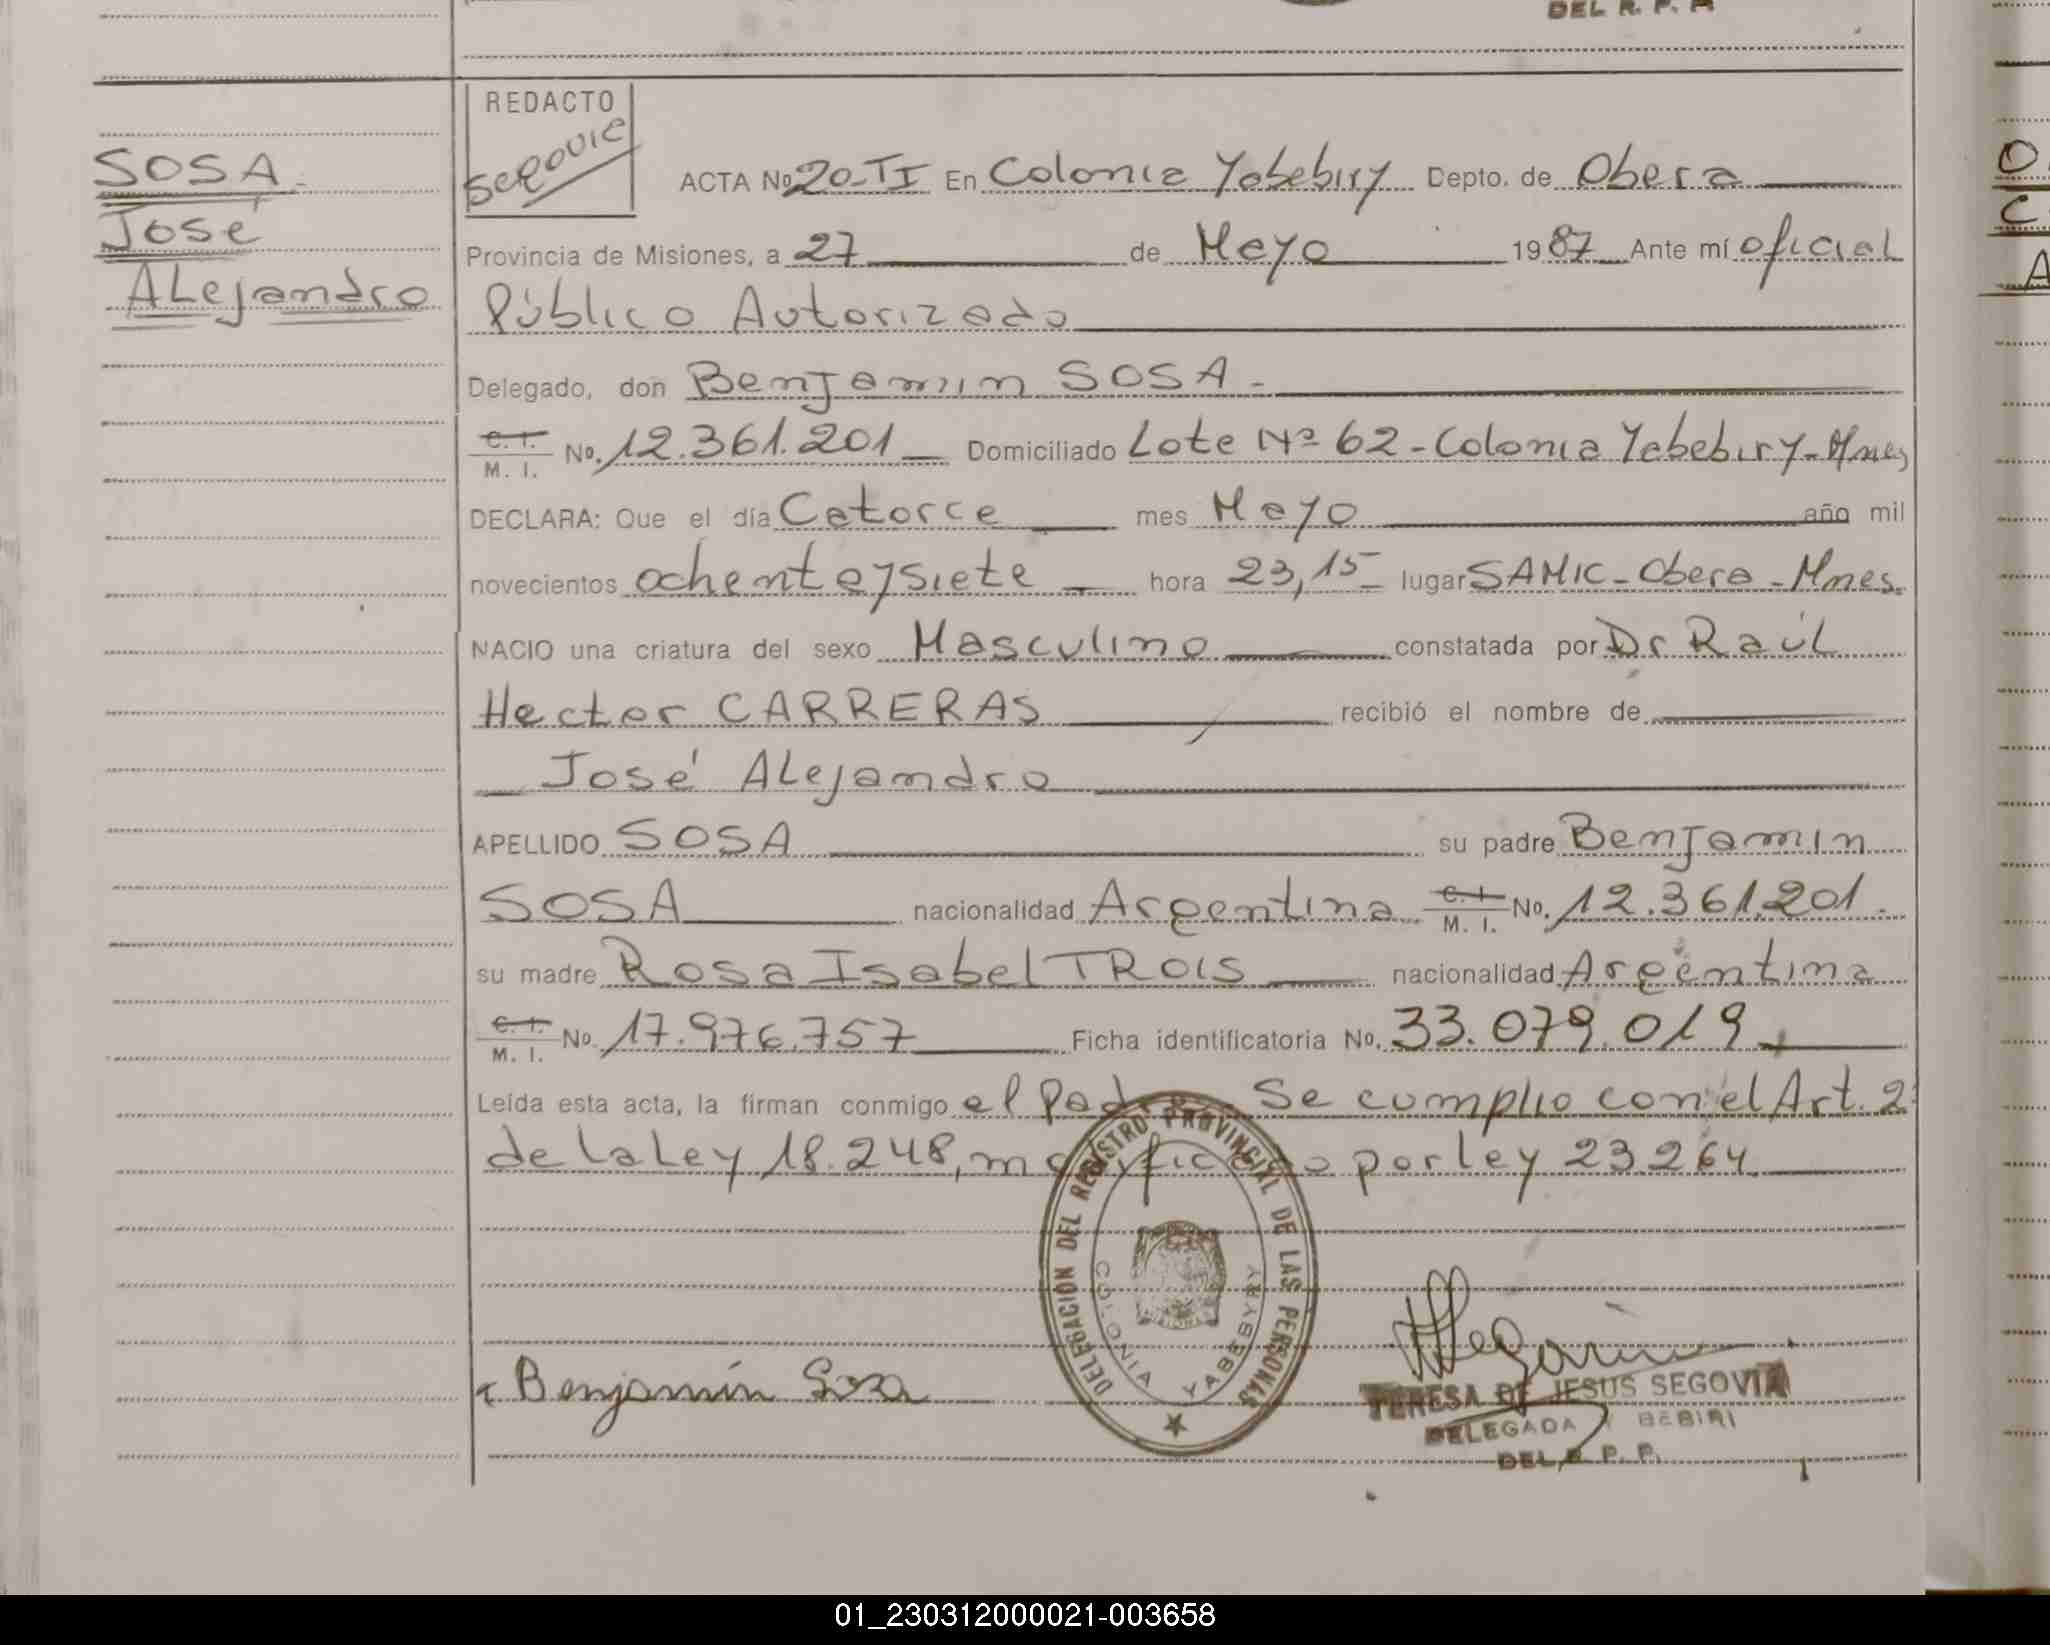 DEL R. P. P.
REDACTO
SEGOVIA
SOSA.
José
Alejandro
ACTA No 20-TI En Colonia Yabebiry Depto. de Obera
Provincia de Misiones, a 27 de Mayo 1987 Ante mí oficial
Público Autorizado
Delegado, don Benjamin SOSA.-
C. I. M. I. No. 12.361.201 Domiciliado Lote Nº 62 - Colonia Yabebiry - Mnes
DECLARA: Que el día Catorce mes Mayo año mil
novecientos ochentaysiete hora 23,15 lugar SAMIC - Obera - Mnes.
NACIO una criatura del sexo Masculino constatada por Dr Raúl
Hector CARRERAS recibió el nombre de
José Alejandro
APELLIDO SOSA su padre Benjamin
SOSA nacionalidad Argentina C. I. M. I. No. 12.361.201.
su madre Rosa Isabel TROIS nacionalidad Argentina
C. I. M. I. No. 17.976.757 Ficha identificatoria No. 33.079.019
Leída esta acta, la firman conmigo el Padre. Se cumplio con el Art. 2
de la Ley 18.248, modificado por ley 23264
DELEGACIÓN DEL REGISTRO PROVINCIAL DE LAS PERSONAS
COLONIA YABEBYRY
Benjamín Sosa
TERESA DE JESUS SEGOVIA
DELEGADA Y BEBIRI
DEL R. P. P.
O
C
A
01_230312000021-003658